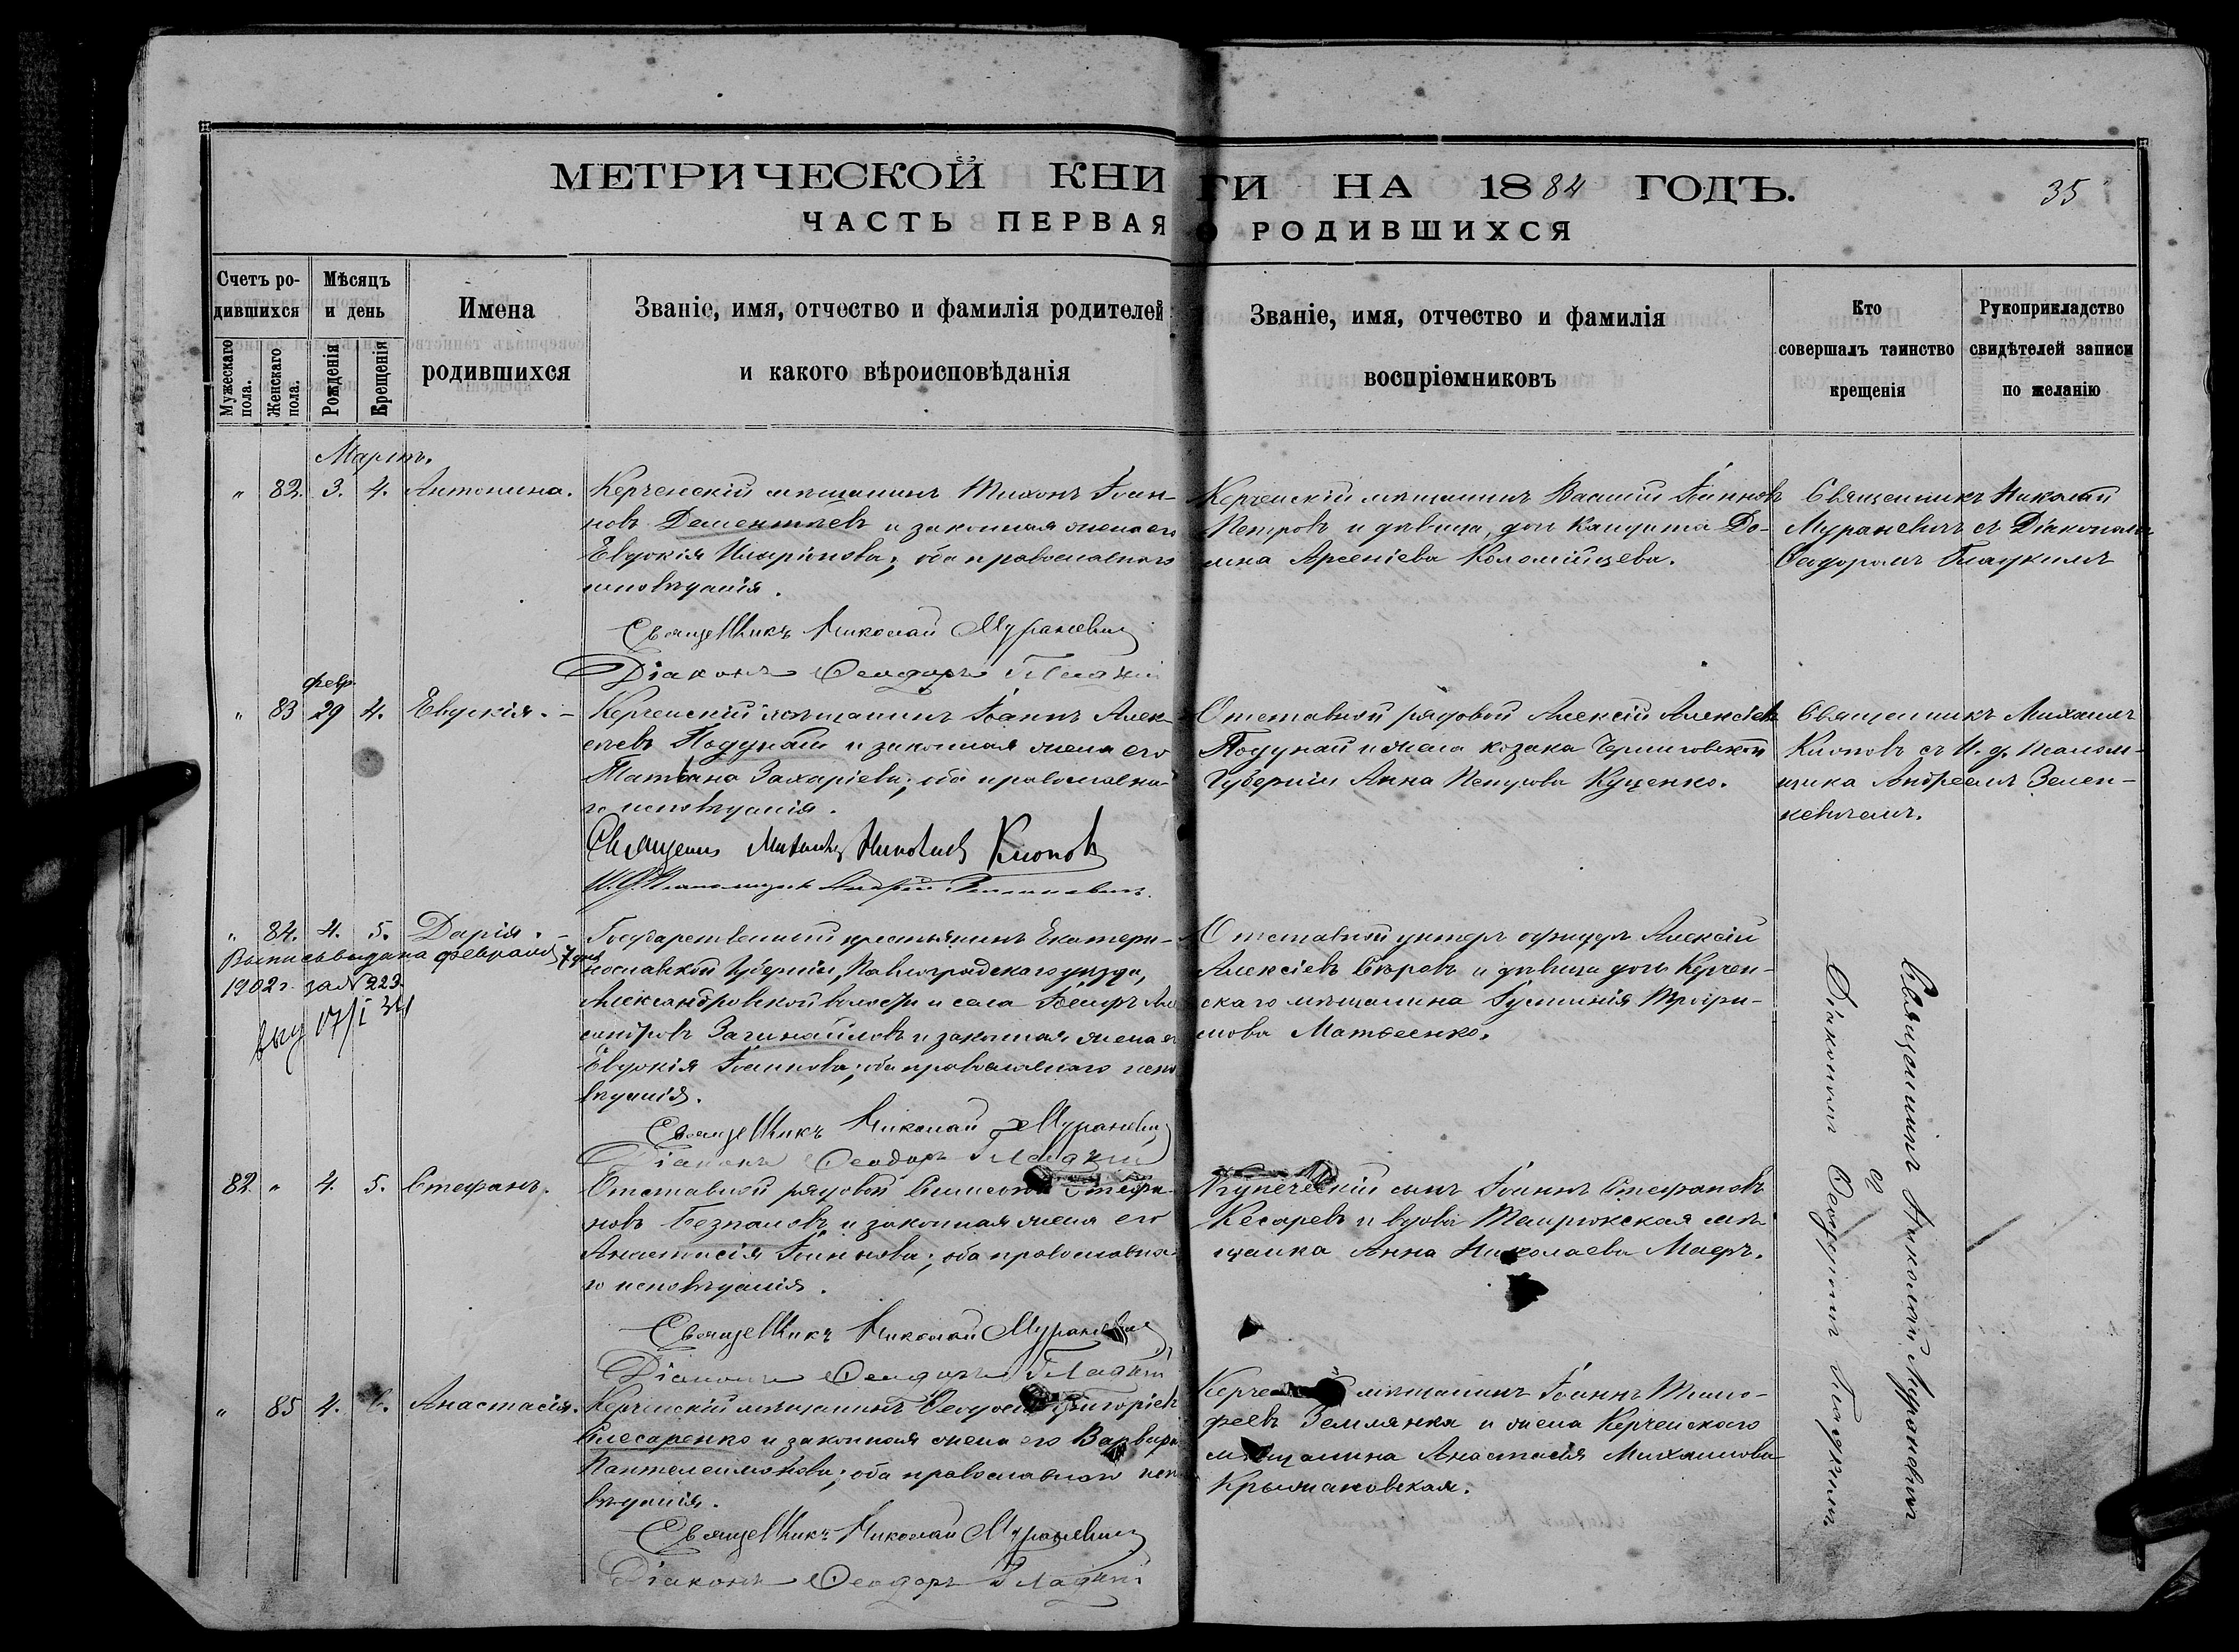 МЕТРИЧЕСКОЙ КНИГИ НА 1884 ГОДЪ.
35
ЧАСТЬ ПЕРВАЯ О РОДИВШИХСЯ
Счетъ родившихся
Мужескаго пола.
Женскаго пола.
Мѣсяцъ и день
Рожденія
Крещенія
Имена
родившихся
Званіе, имя, отчество и фамилія родителей
и какого вѣроисповѣданія
Званіе, имя, отчество и фамилія
воспріемниковъ
Кто
совершалъ таинство
крещенія
Рукоприкладство
свидѣтелей записи
по желанію
Мартъ.
" 82. 3. 4. Антонина.
Керченскій мѣщанинъ Тихонъ Іоан-
новъ Дементьевъ и законная жена его
Евдокія Иларіонова; оба православнаго
исповѣданія.
Священникъ Николай Мураневич
Діаконъ Ѳеодоръ Гладкій
Керченскій мѣщанинъ Василій Іоанновъ
Петровъ и дѣвица, доч Кандита До-
мна Арсеніева Коломійцева.
Священникъ Николай
Мураневичъ съ Діакономъ
Ѳеодоромъ Гладкимъ
февр.
" 83 29 4. Евдокія.
Керченскій мѣщанинъ Іоаннъ Алек-
сѣевъ Подунай и законная жена его
Татьяна Захаріева; оба православна-
го исповѣданія.
Священник Михаилъ Николаев Клопов
И. д. Псаломщика Андрей Зеленкевичъ.
Отставной рядовой Алексій Алексіевъ
Подунай и жена козака Черниговской
Губерніи Анна Кущенко.
Священникъ Михаилъ
Клоповъ съ И. д. Псалом-
щика Андреемъ Зелен-
кевичемъ.
" 84. 4. 5. Дарія.
Выпись выдана февраля 7 дня
1902 г. за № 223
выд 17/I 34
Государственный крестьянинъ Екатери-
нославской Губерніи, Павлоградскаго уѣзда,
Александровской волости и села
Загинайловъ и законная жена его
Евдокія Іоаннова; оба православнаго испо
вѣданія.
Священникъ Николай Мураневич
Діаконъ Ѳеодоръ Гладкій
Отставной унтеръ офицеръ Алексій
Алексіевъ Сѣровъ и дѣвица доч Керчен-
скаго мѣщанина Іустинія Трофи-
мова Матвеенко.
82. " 4. 5. Стефанъ.
Отставной рядовой Стефа-
новъ Безпаловъ и законная жена его
Анастасія Іоаннова; оба православна-
го исповѣданія.
Священникъ Николай Мураневич
Діаконъ Ѳеодоръ Гладкій
Купеческій сынъ Іоаннъ Стефановъ
Кесаревъ и вдова Темрюкская мѣ-
щанка Анна Николаева Маеръ.
" 85 4. 6. Анастасія.
Керченскій мѣщанинъ Григоріевъ
Слесаренко и законная жена его Варвара
Пантелеимонова; оба православнаго испо
вѣданія.
Священникъ Николай Мураневич
Діаконъ Ѳеодоръ Гладкій
мѣщанинъ Іоаннъ Тимо-
феевъ Землянка и жена Керченскаго
мѣщанина Анастасія Михаилова
Крыжановская.
Священникъ Николай Мураневичъ
съ
Діакономъ Ѳеодоромъ Гладкимъ.